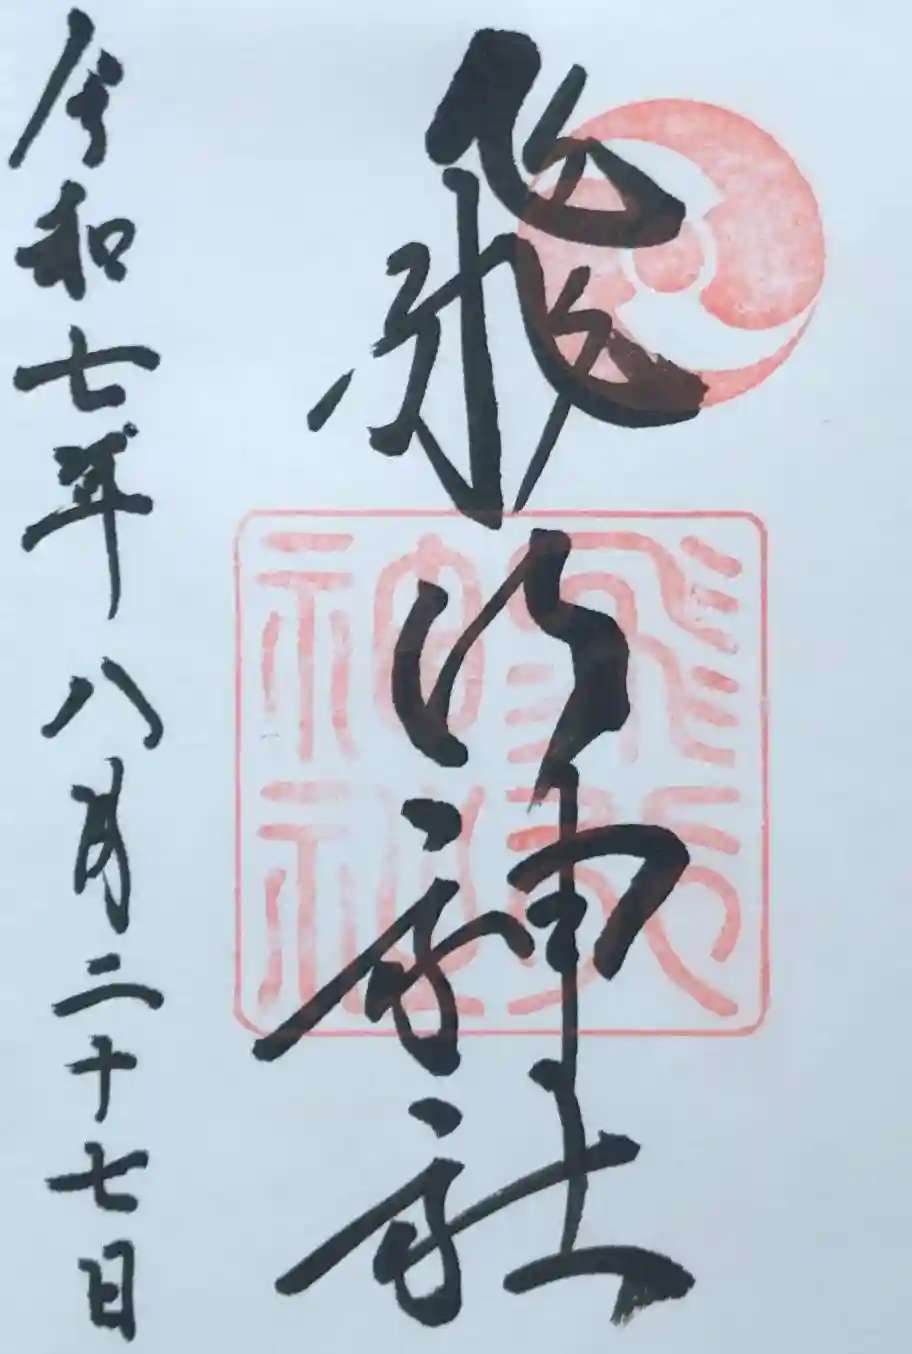 飛行神社
飛行
神社
令和七年八月二十七日